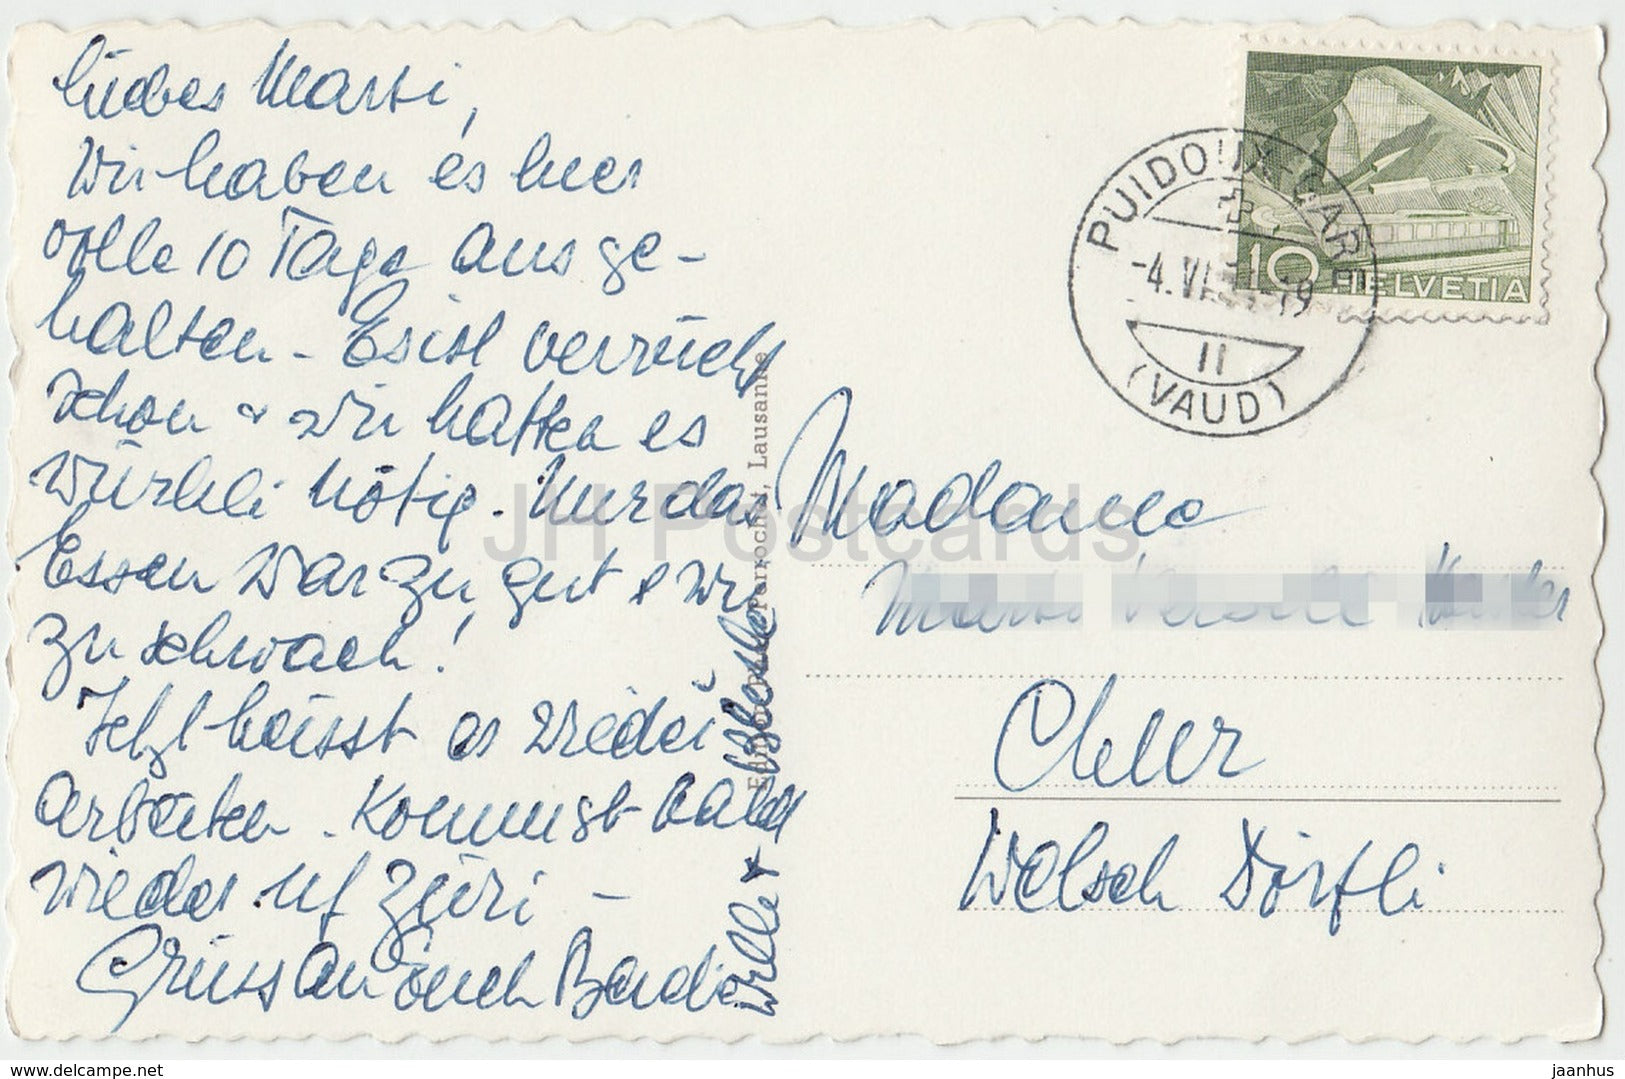 liebes Marti,
Wir haben es hier
volle 10 Tage ausge-
halten - Es ist verrückt
schon & wir hatten es
würkli nötig. Nur das
Essen war zu gut & wir
zu schwach!
Jetzt heisst es wieder
arbeiten. Kommst bald
wieder uf Züri -
Grüss an Euch Beide
Edition Perrochet, Lausanne
PUIDOUX-GARE
-4. VI. -19
II
(VAUD)
10 HELVETIA
Madame
Chur
Welsch Dörfli
JH Postcards
www.delcampe.net
jaanhus